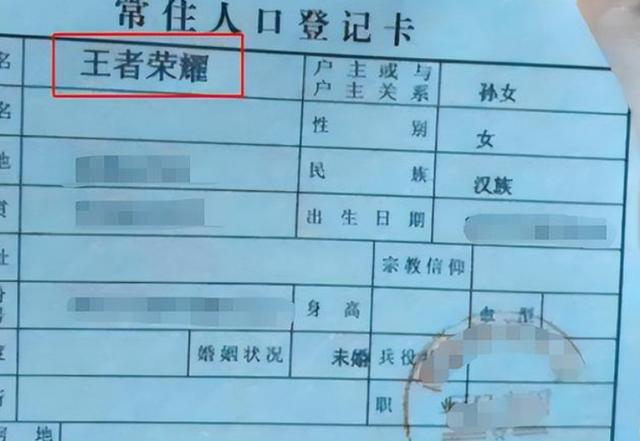 常住人口登记卡
名 王者荣耀 户主或与户主关系 孙女
名 性别 女
地 民族 汉族
贯 出生日期
址 宗教信仰
身高 血型
婚姻状况 未婚 兵役
所 职业
地